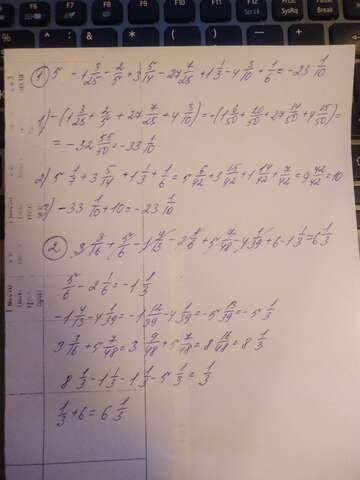 ① 5 - 1 3/25 - 2/5 + 3 5/14 - 27 7/25 + 1 1/3 - 4 3/10 + 1/6 = -23 1/10
1) -(1 3/25 + 2/5 + 27 7/25 + 4 3/10) = -(1 6/50 + 20/50 + 27 14/50 + 4 15/50) =
= -32 55/50 = -33 1/10
2) 5 1/7 + 3 5/14 + 1 1/3 + 1/6 = 5 6/42 + 3 15/42 + 1 14/42 + 7/42 = 9 42/42 = 10
3) -33 1/10 + 10 = -23 1/10
② 3 3/16 + 5/6 - 1 4/13 - 2 1/6 + 5 7/48 - 4 1/39 + 6 - 1 1/3 = 6 1/3
5/6 - 2 1/6 = -1 1/3
-1 4/13 - 4 1/39 = -1 12/39 - 4 1/39 = -5 13/39 = -5 1/3
3 3/16 + 5 7/48 = 3 9/48 + 5 7/48 = 8 16/48 = 8 1/3
8 1/3 - 1 1/3 - 1 1/3 - 5 1/3 = 1/3
1/3 + 6 = 6 1/3